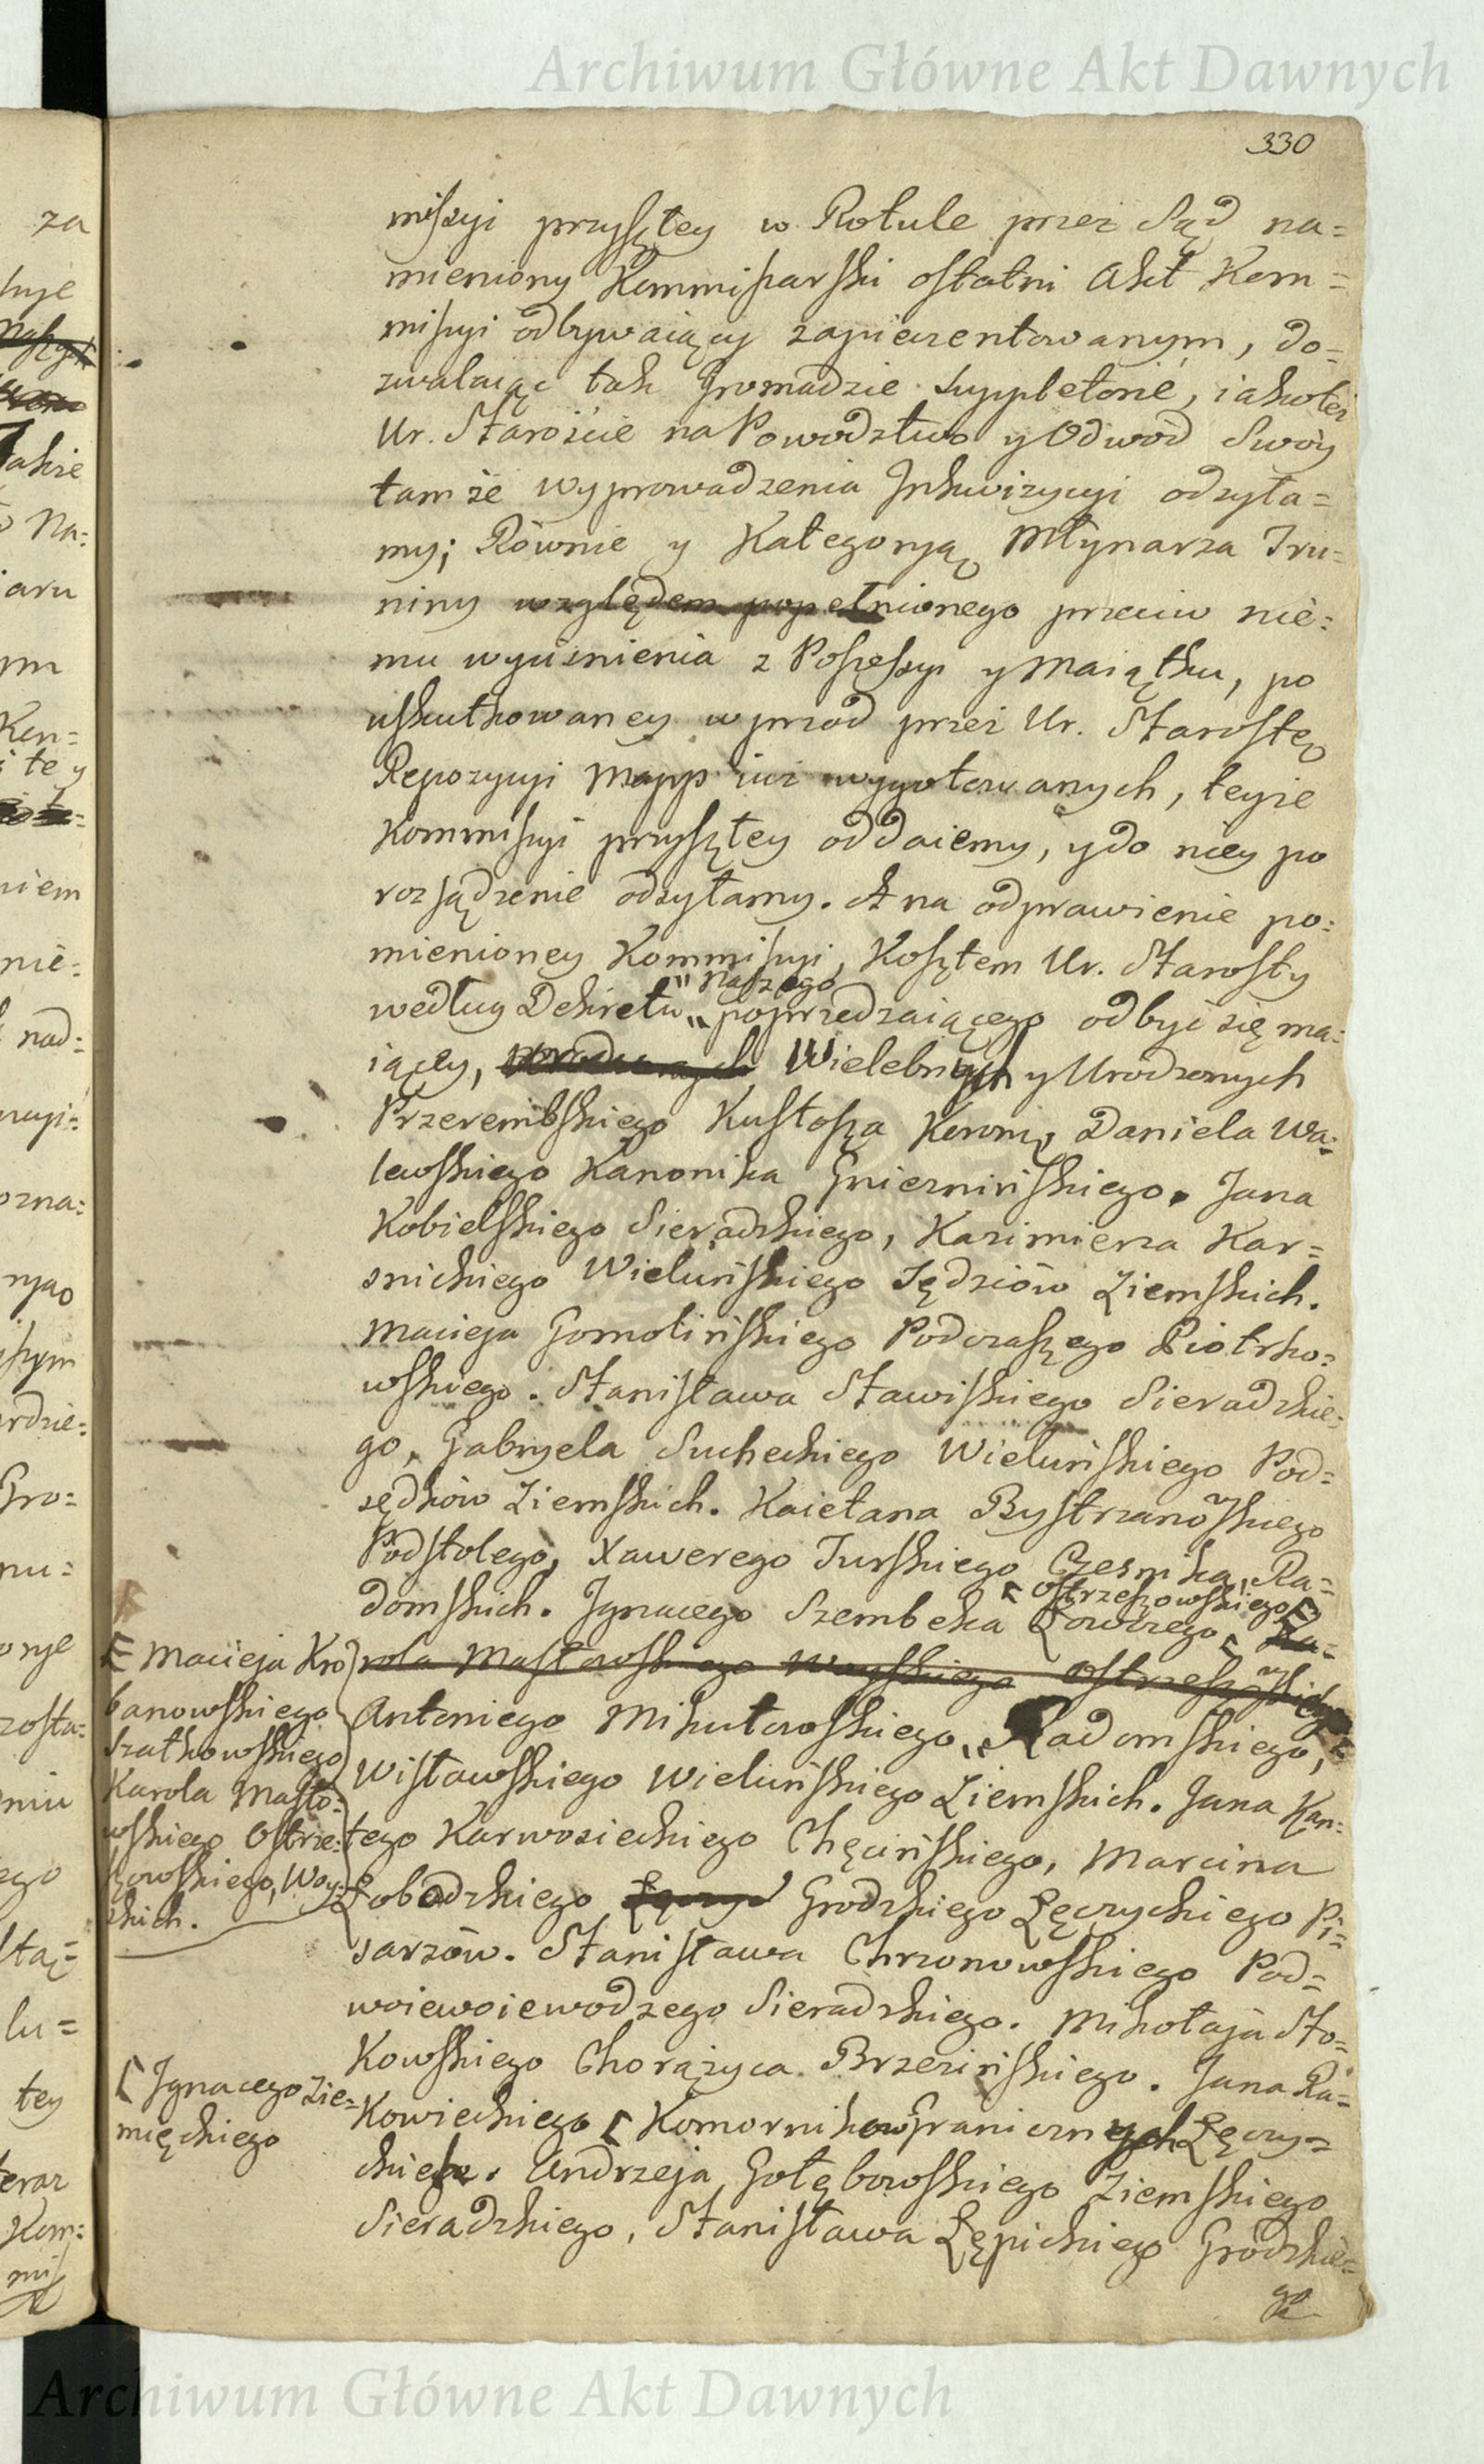 Archiwum Główne Akt Dawnych
330
missyi przyszłey w Rotule przez Sąd na=
mieniony Kommissarski ostatni Akt Kom=
missyi odbywaiący zapieczentowanym, do=
zwalaiąc tak Gromadzie suppletorie, iakoteż
Ur. Staroście na Powodztwo y Odwod Swóy
tamże wyprowadzenia Inkwizycyi odsyła=
my; Rownie y Kategoryą Młynarza Tru=
niny względem popełnionego przeciw nie=
mu wyciśnienia z Possessyi y Maiątku, po
uskutkowaney wprzod przez Ur. Starostę
Repozycyi Mapp iuż wygotowanych, teyże
Kommissyi przyszłey oddaiemy, y do niey po
rozsądzenie odsyłamy. A na odprawienie po=
mienioney Kommissyi, Kosztem Ur. Starosty
naszego
według Dekretu poprzedzaiącego odbyć się ma=
iącey, Wielebnych y Urodzonych
Przerembskiego Kustosza Koronn, Daniela Wa=
lewskiego Kanonika Gnieznińskiego. Jana
Kobielskiego Sieradzkiego, Kazimierza Kar=
snickiego Wieluńskiego Sędziów Ziemskich.
Macieja Gomolińskiego Podczaszego Piotrko=
wskiego. Stanisława Stawiskiego Sieradzkie=
go, Gabryela Sucheckiego Wieluńskiego Pod=
sędków Ziemskich. Kaietana Bystrzanowskiego
Podstolego, Xawerego Turskiego Czesnika Ra=
Ostrzeszowskiego
domskich. Ignacego Szembeka Łowczego Ka=
rola Masłowskiego Woyskiego Ostrzeszowskich
Antoniego Mikułowskiego Radomskiego,
Wisławskiego Wieluńskiego Ziemskich. Jana Kan=
tego Karwosieckiego Chęcińskiego, Marcina
Łobodzkiego Grodzkiego Łęczyckiego Pi=
sarzów. Stanisława Chrzonowskiego Pod=
woiewoiewodzego Sieradzkiego. Mikołaja Sto=
kowskiego Chorążyca Brzezińskiego. Jana Ra=
kowieckiego Komorników Granicznych Łęczy=
ckich. Andrzeja Gołębowskiego Ziemskiego
Sieradzkiego, Stanisława Łępickiego Grodzkie=
go
Macieja Kro
banowskiego
Szatkowskiego
Karola Masło=
wskiego Ostrze=
szowskiego, Woy=
skich.
Ignacego Zie=
mięckiego
Archiwum Główne Akt Dawnych